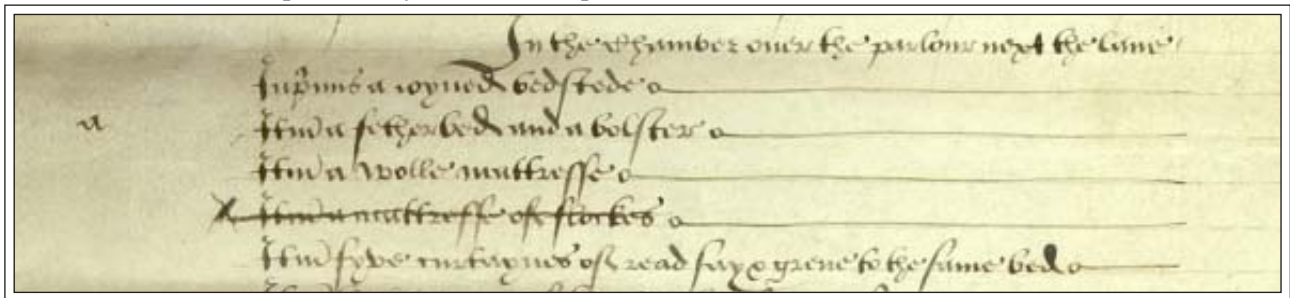 In the Chamber over the parlour next the lane
Inprimis a ioyned bedstede
a
Itm a fetherbed and a bolster
Itm a wolle mattresse
Itm a mattresse of flockes
Itm fyve curtaynes of read say & grene to the same bed